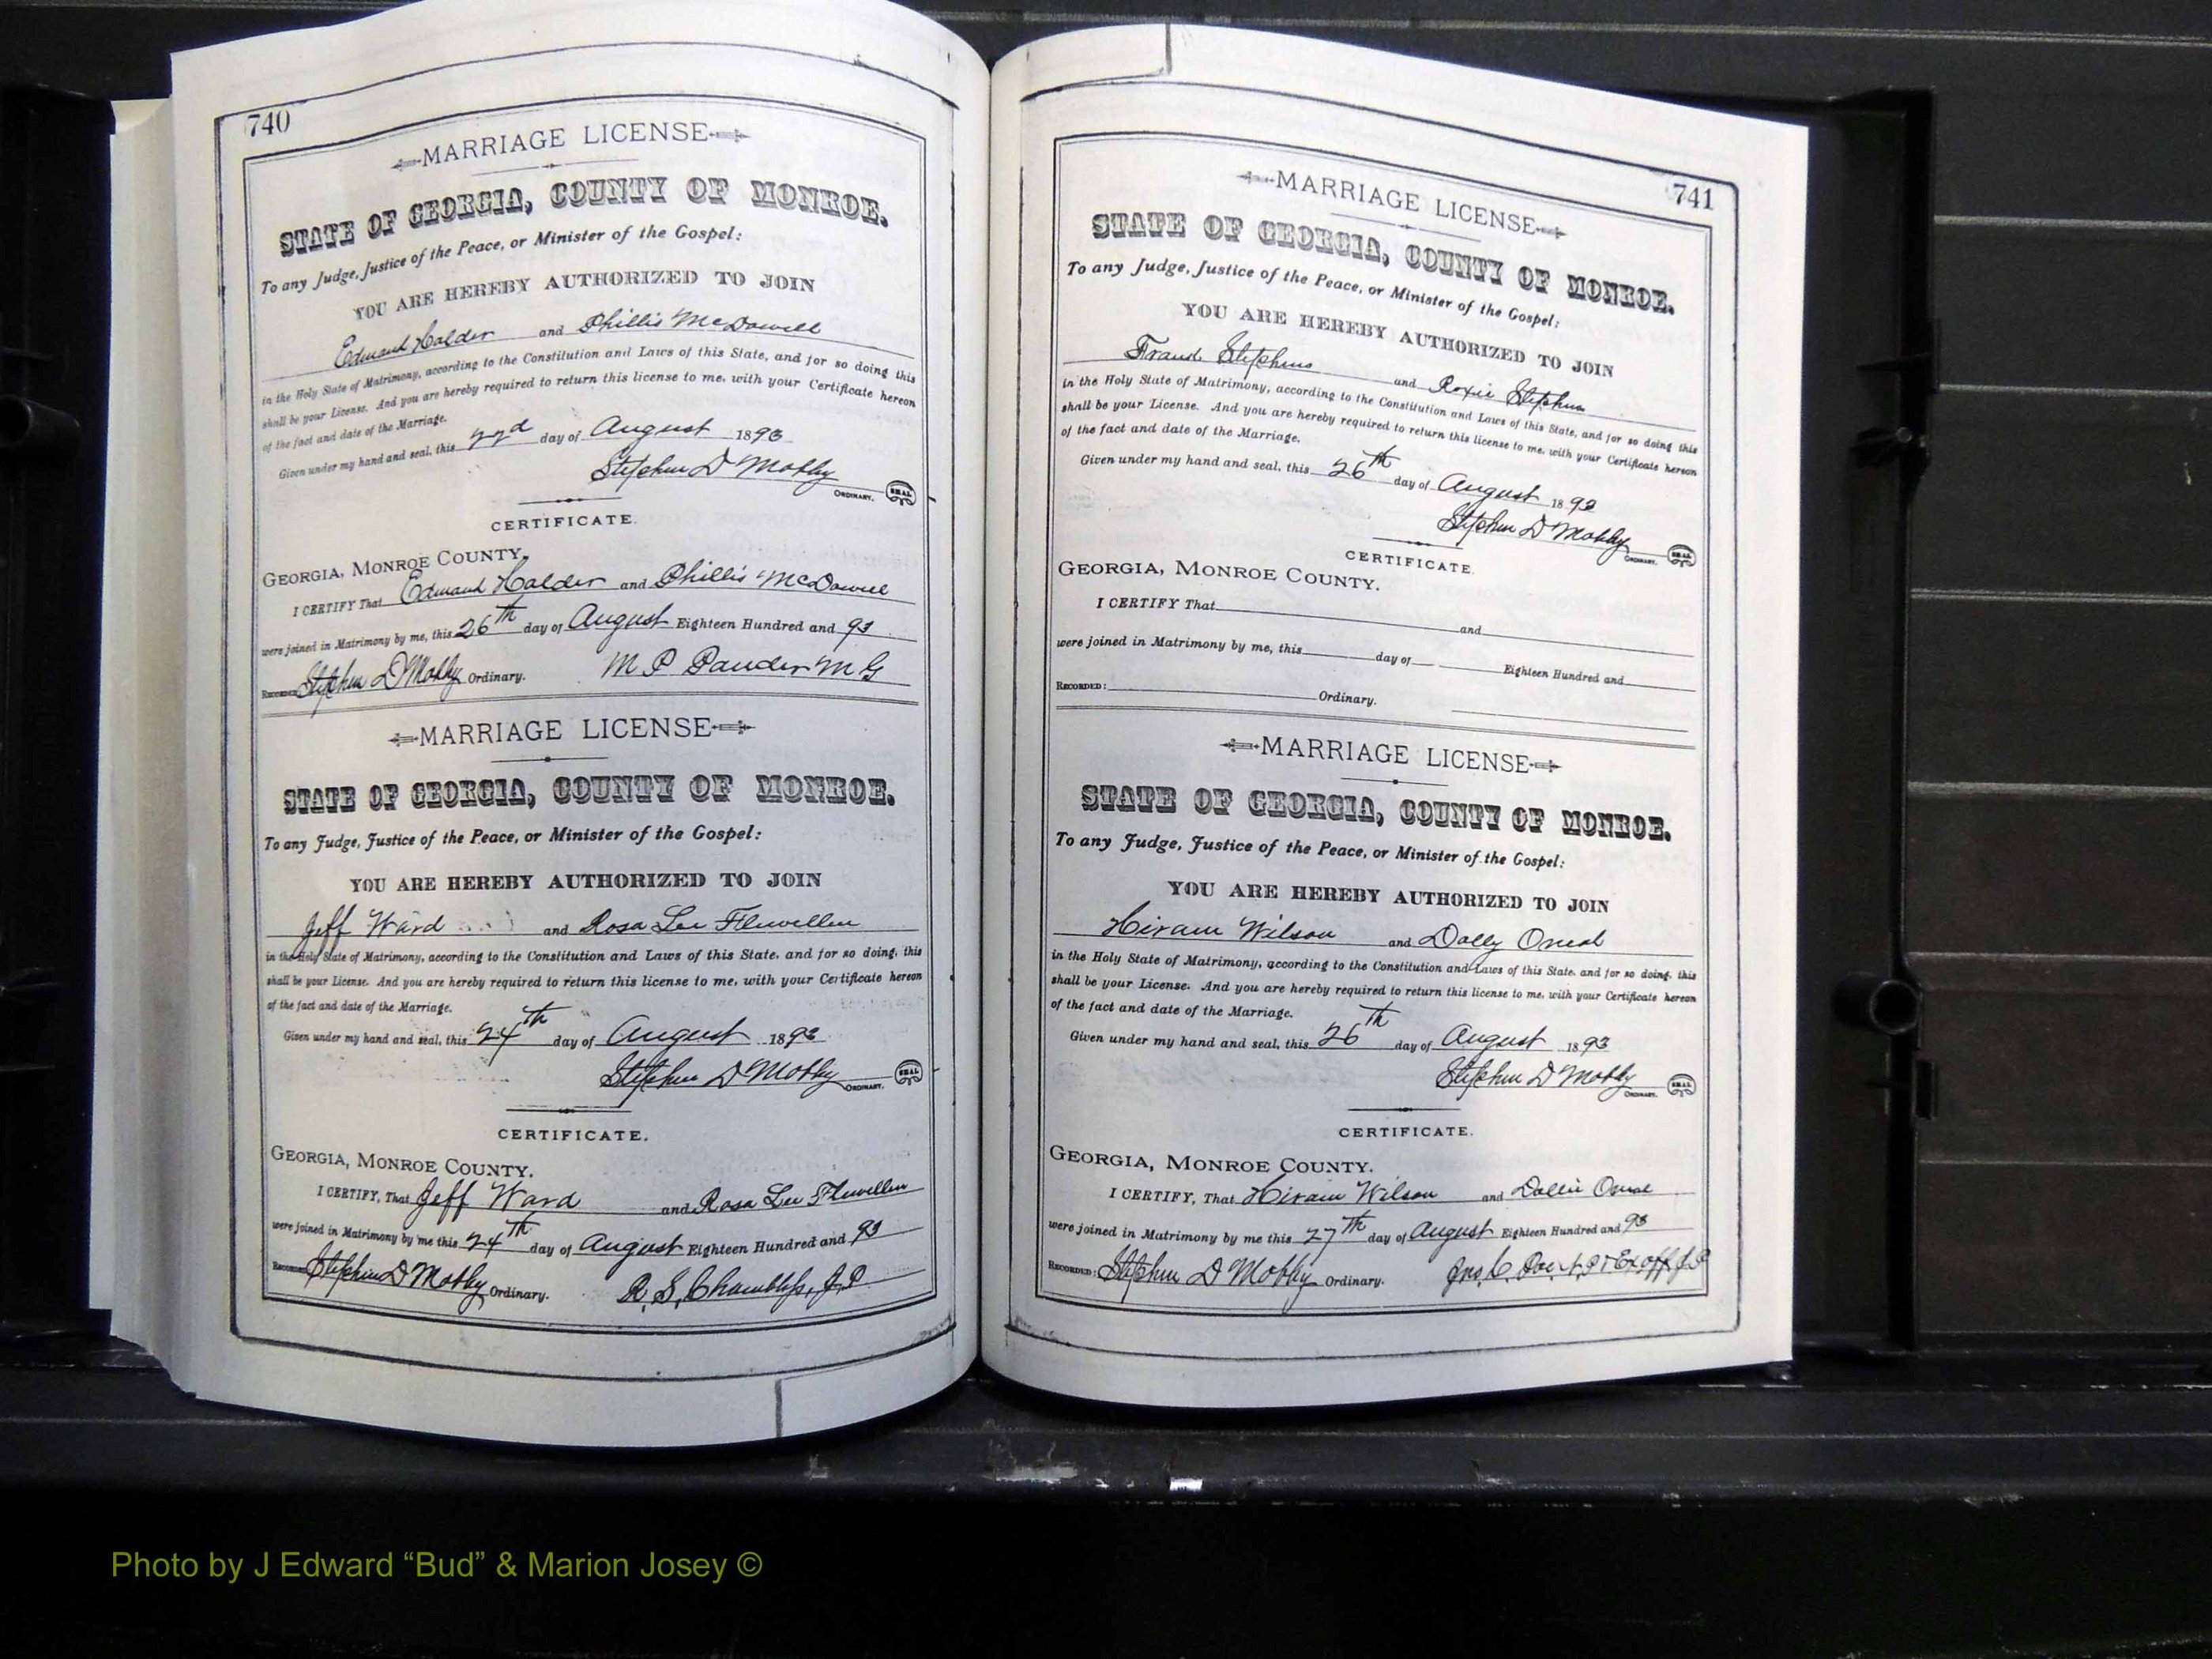 740
MARRIAGE LICENSE
STATE OF GEORGIA, COUNTY OF MONROE.
To any Judge, Justice of the Peace, or Minister of the Gospel:
YOU ARE HEREBY AUTHORIZED TO JOIN
Edmund Holder and Phillis McDowell
in the Holy State of Matrimony, according to the Constitution and Laws of this State, and for so doing this
shall be your License. And you are hereby required to return this license to me, with your Certificate hereon
of the fact and date of the Marriage.
Given under my hand and seal, this 22d day of August 1893
Stephen D Mobly
ORDINARY. SEAL
CERTIFICATE.
GEORGIA, MONROE COUNTY.
I CERTIFY That Edmund Holder and Phillis McDowell
were joined in Matrimony by me, this 26th day of August Eighteen Hundred and 93
RECORDED Stephen D Mobly Ordinary. M P M G
MARRIAGE LICENSE
STATE OF GEORGIA, COUNTY OF MONROE.
To any Judge, Justice of the Peace, or Minister of the Gospel:
YOU ARE HEREBY AUTHORIZED TO JOIN
Jeff Ward and Rosa Lee Flewellen
in the Holy State of Matrimony, according to the Constitution and Laws of this State, and for so doing, this
shall be your License. And you are hereby required to return this license to me, with your Certificate hereon
of the fact and date of the Marriage.
Given under my hand and seal, this 24th day of August 1893
Stephen D Mobly
ORDINARY. SEAL
CERTIFICATE.
GEORGIA, MONROE COUNTY.
I CERTIFY, That Jeff Ward and Rosa Lee Flewellen
were joined in Matrimony by me this 24th day of August Eighteen Hundred and 93
RECORDED Stephen D Mobly Ordinary. R. S. Chambliss, J.P.
741
MARRIAGE LICENSE
STATE OF GEORGIA, COUNTY OF MONROE.
To any Judge, Justice of the Peace, or Minister of the Gospel:
YOU ARE HEREBY AUTHORIZED TO JOIN
Stephens and Roxie Stephens
in the Holy State of Matrimony, according to the Constitution and Laws of this State, and for so doing this
shall be your License. And you are hereby required to return this license to me, with your Certificate hereon
of the fact and date of the Marriage.
Given under my hand and seal, this 26th day of August 1893
Stephen D Mobly
ORDINARY. SEAL
CERTIFICATE.
GEORGIA, MONROE COUNTY.
I CERTIFY That and
were joined in Matrimony by me, this day of Eighteen Hundred and
RECORDED: Ordinary.
MARRIAGE LICENSE
STATE OF GEORGIA, COUNTY OF MONROE.
To any Judge, Justice of the Peace, or Minister of the Gospel:
YOU ARE HEREBY AUTHORIZED TO JOIN
Hiram Wilson and Dolly Oneal
in the Holy State of Matrimony, according to the Constitution and Laws of this State. and for so doing, this
shall be your License. And you are hereby required to return this license to me, with your Certificate hereon
of the fact and date of the Marriage.
Given under my hand and seal, this 26th day of August 1893
Stephen D Mobly
ORDINARY. SEAL
CERTIFICATE.
GEORGIA, MONROE COUNTY.
I CERTIFY, That Hiram Wilson and Dollie Oneal
were joined in Matrimony by me this 27th day of August Eighteen Hundred and 93
RECORDED: Stephen D Mobly Ordinary. Jno. C. Exoff J.P
Photo by J Edward “Bud” & Marion Josey ©